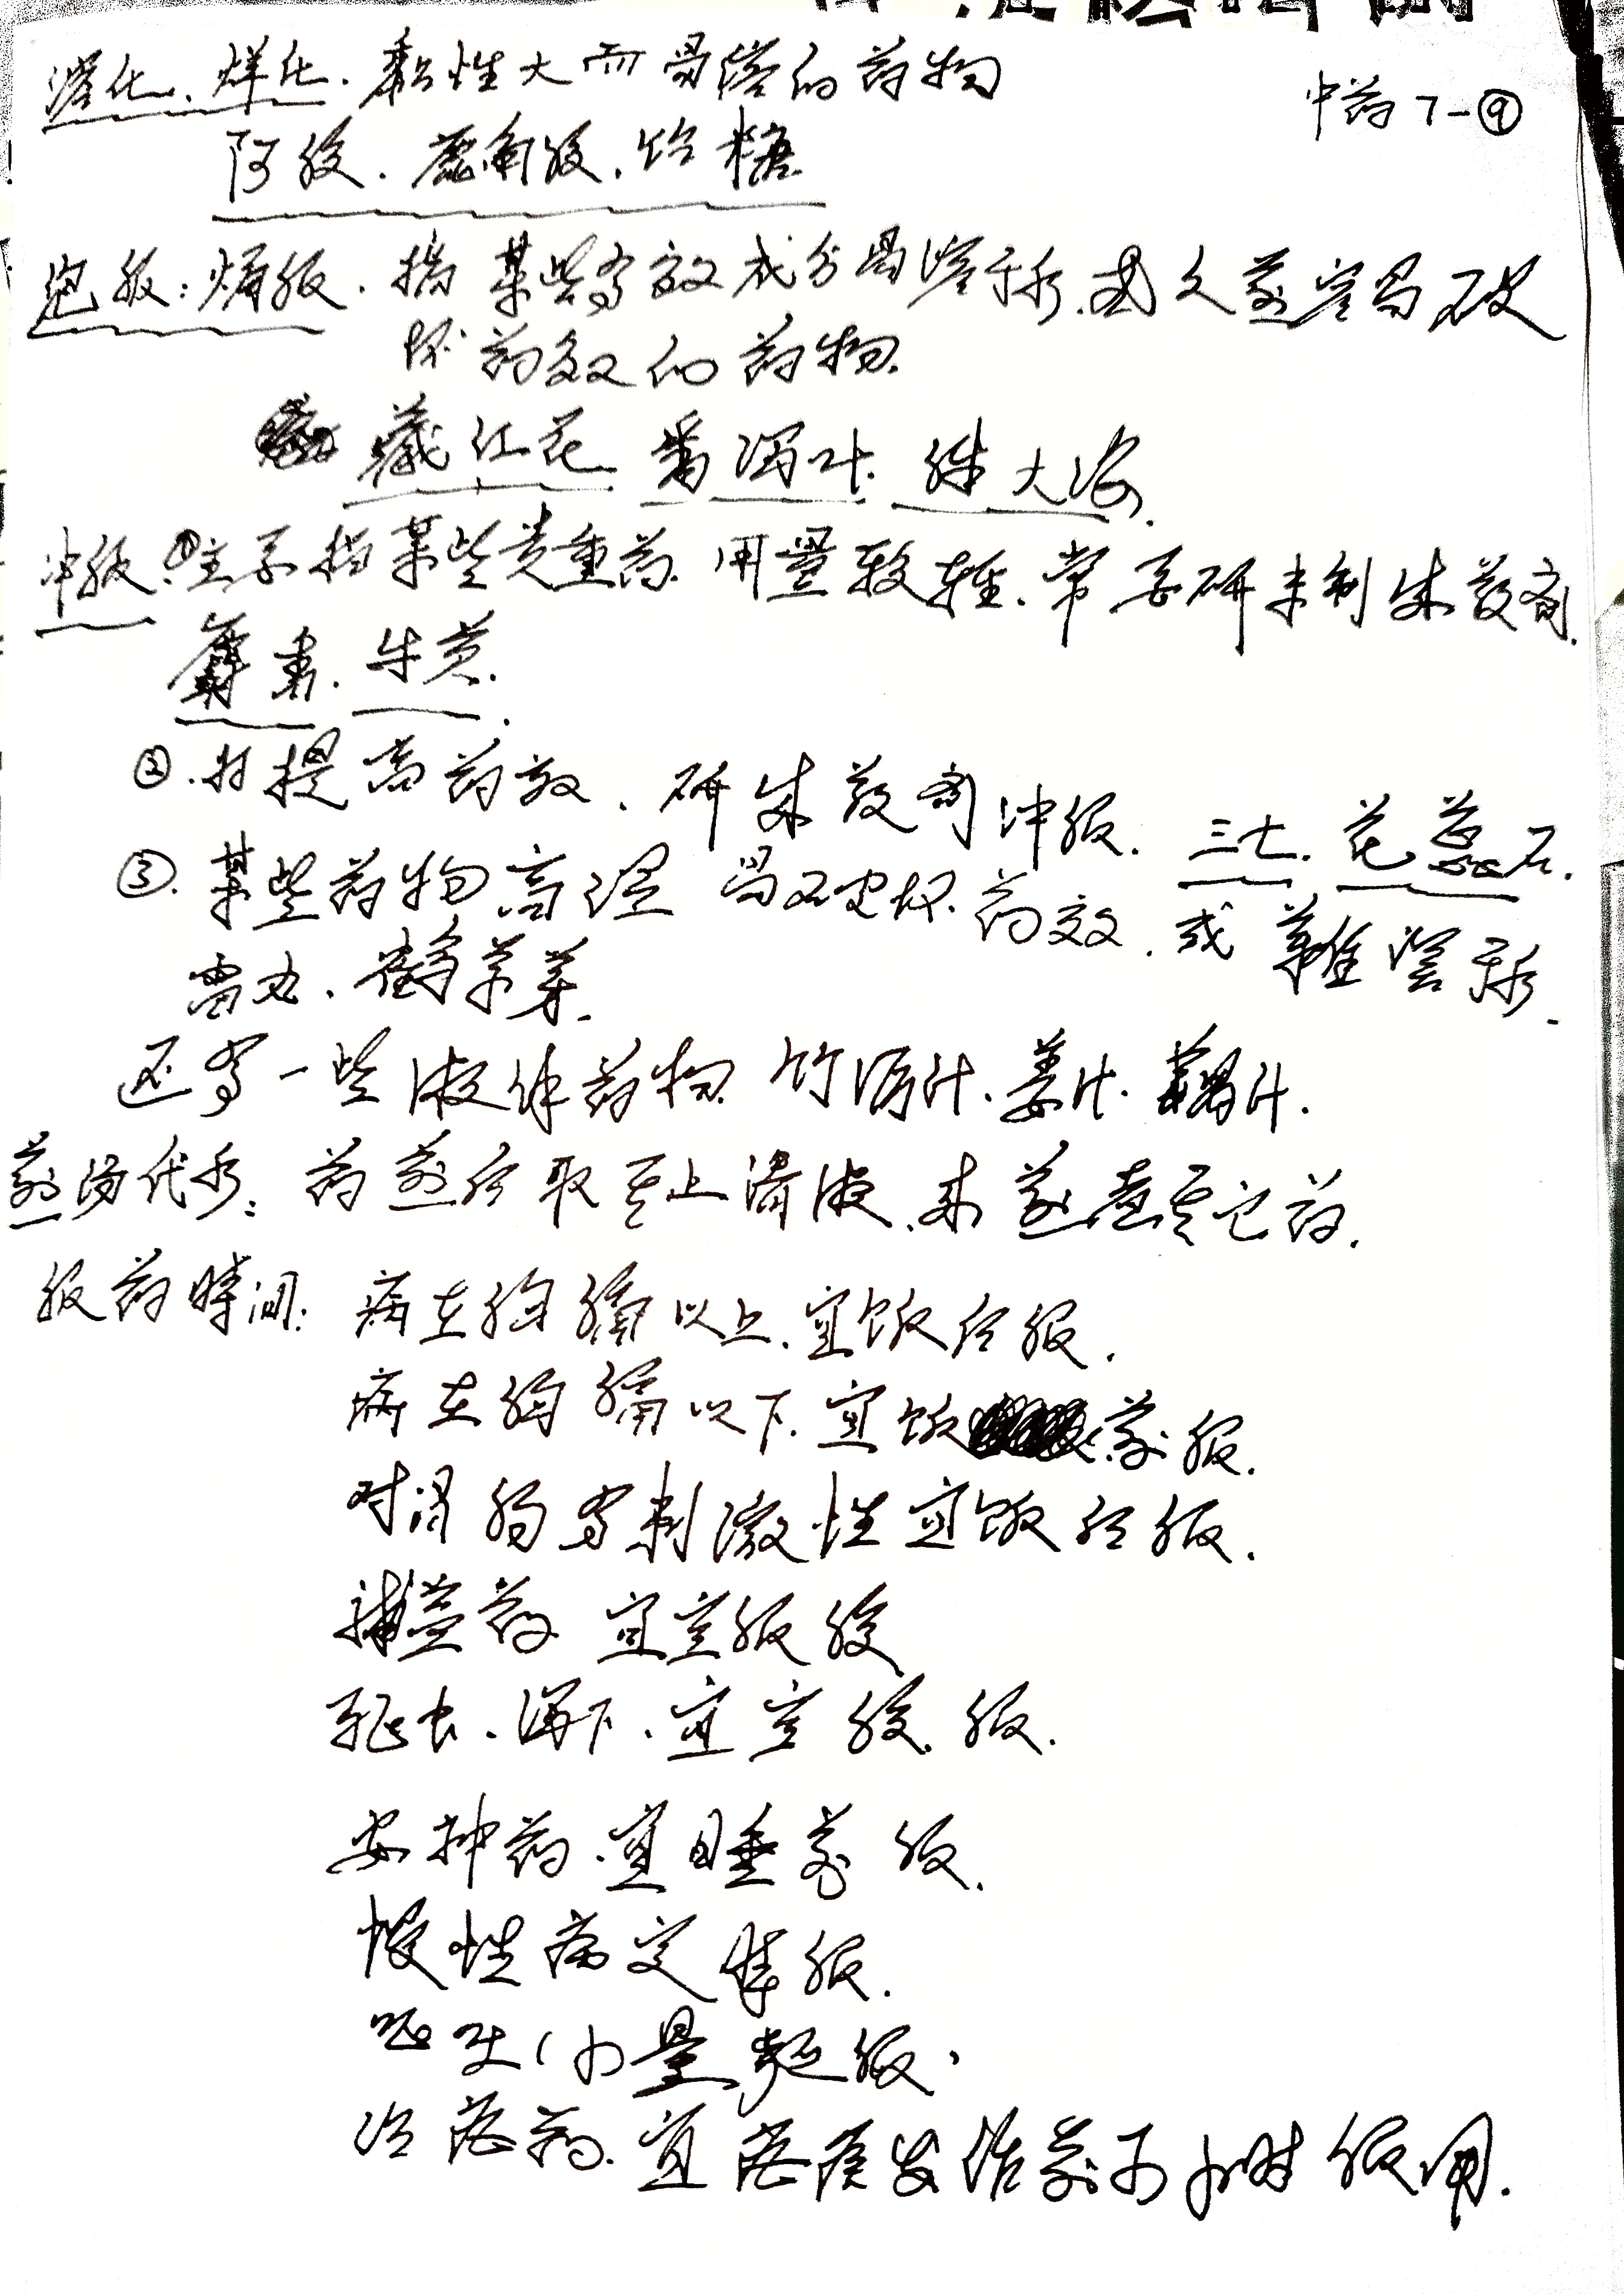 中药 7-⑨
溶化、烊化. 黏性大而易溶的药物
阿胶. 鹿角胶. 饴糖.
泡服: 焗服. 指某些有效成分易溶于水. 或久煎容易破
坏药效的药物.
藏红花 番泻叶. 胖大海.
冲服: ①主要指某些贵重药. 用量较轻. 常要研末制成散剂.
麝香. 牛黄.
②. 为提高药效. 研成散剂冲服. 三七. 花蕊石.
③. 某些药物高温易破坏药效. 或难溶于水.
雷丸. 鹤草芽.
还有一些液体药物. 竹沥汁. 姜汁. 藕汁.
煎汤代水: 药煎后取其上清液. 来煎煮其它药.
服药时间: 病在胸膈以上. 宜饭后服.
病在胸膈以下. 宜饭前服.
对胃肠有刺激性宜饭后服.
补益药 宜空服腹
驱虫. 泻下. 宜空腹. 服.
安神药. 宜睡前服.
慢性病定时服.
呕吐 小量频服.
治疟药. 宜疟疾发作前两小时服用.